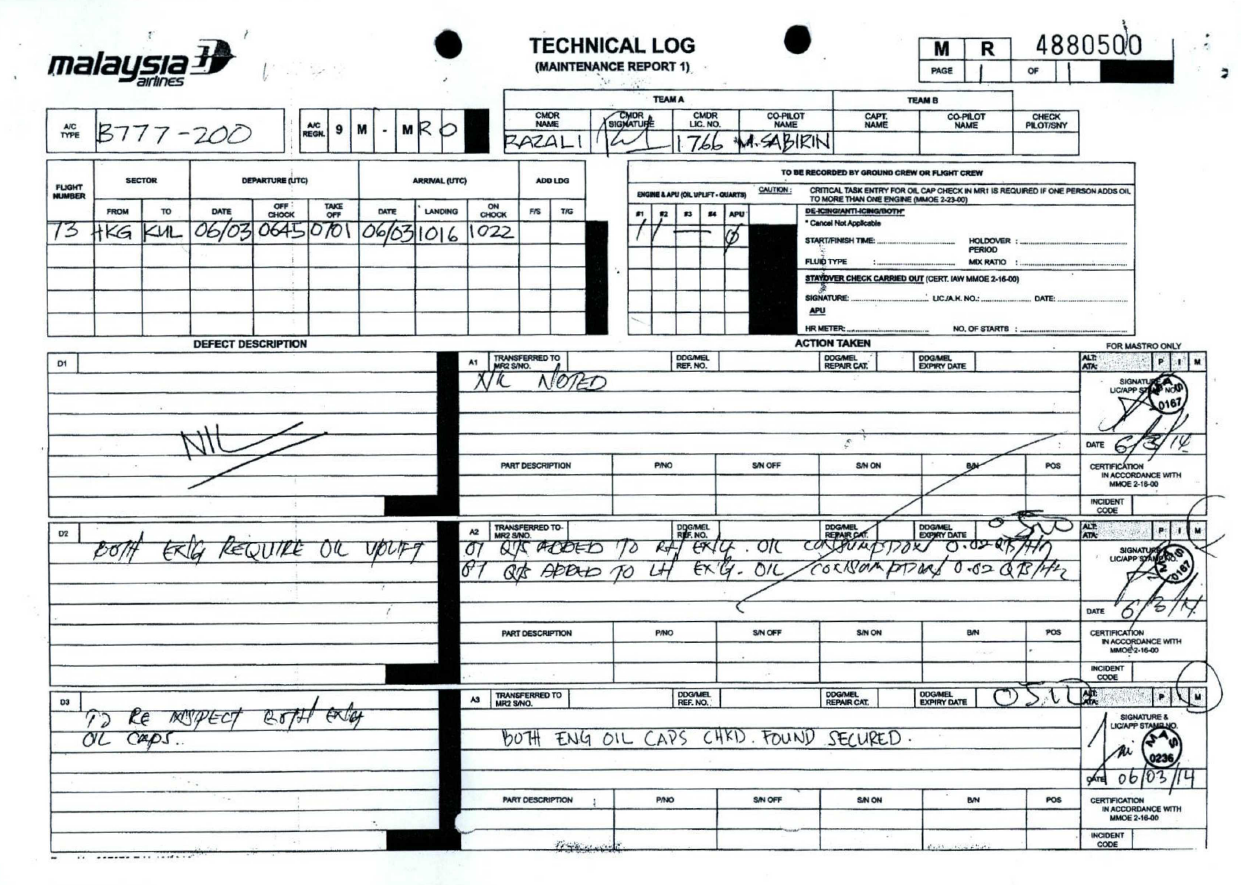 malaysia
airlines
TECHNICAL LOG
(MAINTENANCE REPORT 1)
M R 4880500
PAGE 1 OF 1
A/C TYPE B777-200
A/C REGN. 9 M - M R O
TEAM A TEAM B
CMDR NAME CMDR SIGNATURE CMDR LIC. NO. CO-PILOT NAME CAPT. NAME CO-PILOT NAME CHECK PILOT/SNY
RAZALI 1766 M.SABIRIN
FLIGHT NUMBER SECTOR DEPARTURE (UTC) ARRIVAL (UTC) ADD LDG
FROM TO DATE OFF CHOCK TAKE OFF DATE LANDING ON CHOCK F/S T/G
73 HKG KUL 06/03 0645 0701 06/03 1016 1022
TO BE RECORDED BY GROUND CREW OR FLIGHT CREW
ENGINE & APU (OIL UPLIFT - QUARTS)
CAUTION : CRITICAL TASK ENTRY FOR OIL CAP CHECK IN MR1 IS REQUIRED IF ONE PERSON ADDS OIL
TO MORE THAN ONE ENGINE (MMOE 2-23-00)
#1 #2 #3 #4 APU
1 1 — 0
DE-ICING/ANTI-ICING/BOTH*
* Cancel Not Applicable
START/FINISH TIME: HOLDOVER PERIOD :
FLUID TYPE : MIX RATIO :
STAYOVER CHECK CARRIED OUT (CERT. IAW MMOE 2-16-00)
SIGNATURE: LIC./A.H. NO.: DATE:
APU
HR METER: NO. OF STARTS :
DEFECT DESCRIPTION ACTION TAKEN FOR MASTRO ONLY
D1 A1 TRANSFERRED TO MR2 S/NO. DDG/MEL REF. NO. DDG/MEL REPAIR CAT. DDG/MEL EXPIRY DATE ALT: ATA: P I M
NIL NIL NOTED
SIGNATURE LIC/APP STAMP NO
MAS 0167
DATE 6/3/14
PART DESCRIPTION P/NO S/N OFF S/N ON B/N POS
CERTIFICATION IN ACCORDANCE WITH MMOE 2-16-00
INCIDENT CODE
D2 A2 TRANSFERRED TO MR2 S/NO. DDG/MEL REF. NO. DDG/MEL REPAIR CAT. DDG/MEL EXPIRY DATE ALT: ATA: P I M
BOTH ENG REQUIRE OIL UPLIFT
01 QTS ADDED TO RH ENG. OIL CONSUMPTION 0.02 QTS/HR
01 QTS ADDED TO LH ENG. OIL CONSUMPTION 0.02 QTS/HR
SIGNATURE LIC/APP STAMP NO
MAS 0167
DATE 6/3/14
PART DESCRIPTION P/NO S/N OFF S/N ON B/N POS
CERTIFICATION IN ACCORDANCE WITH MMOE 2-16-00
INCIDENT CODE
D3 A3 TRANSFERRED TO MR2 S/NO. DDG/MEL REF. NO. DDG/MEL REPAIR CAT. DDG/MEL EXPIRY DATE ALT: ATA: P I M
TO RE INSPECT BOTH ENG
OIL CAPS..
BOTH ENG OIL CAPS CHKD. FOUND SECURED.
SIGNATURE & LIC/APP STAMP NO.
MAS 0236
DATE 06/03/14
PART DESCRIPTION P/NO S/N OFF S/N ON B/N POS
CERTIFICATION IN ACCORDANCE WITH MMOE 2-16-00
INCIDENT CODE